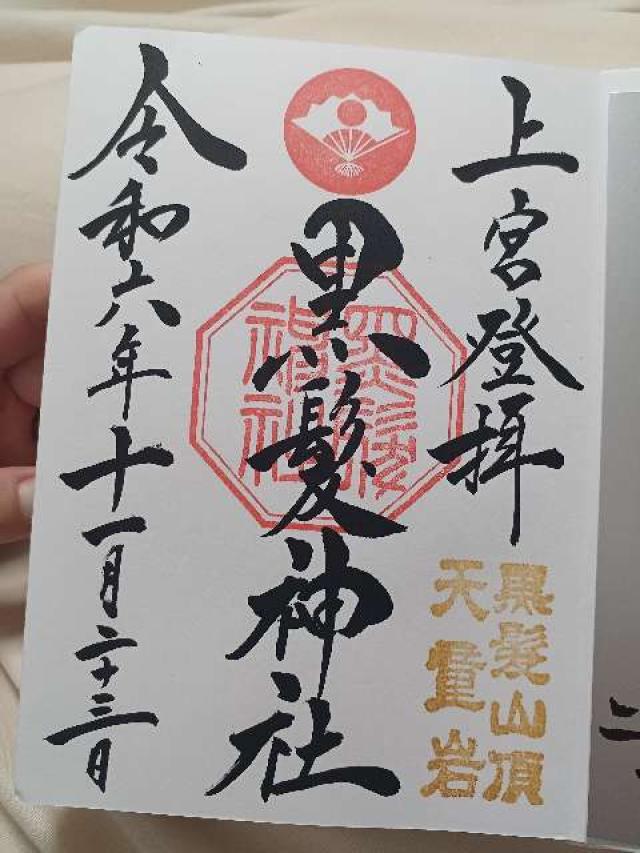 上宮登拝
黒髪山頂
天童岩
黒髪神社
令和六年十一月二十三日